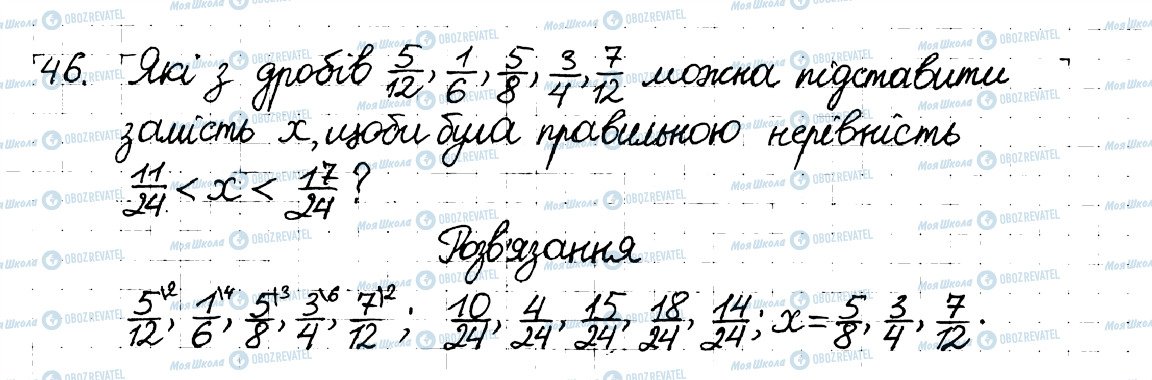 46. Які з дробів 5/12, 1/6, 5/8, 3/4, 7/12 можна підставити
замість x, щоби була правильною нерівність
11/24 < x < 17/24?
Розв'язання
5/12\2, 1/6\4, 5/8\3, 3/4\6, 7/12\2; 10/24, 4/24, 15/24, 18/24, 14/24; x = 5/8, 3/4, 7/12.
МояШкола OBOZREVATEL